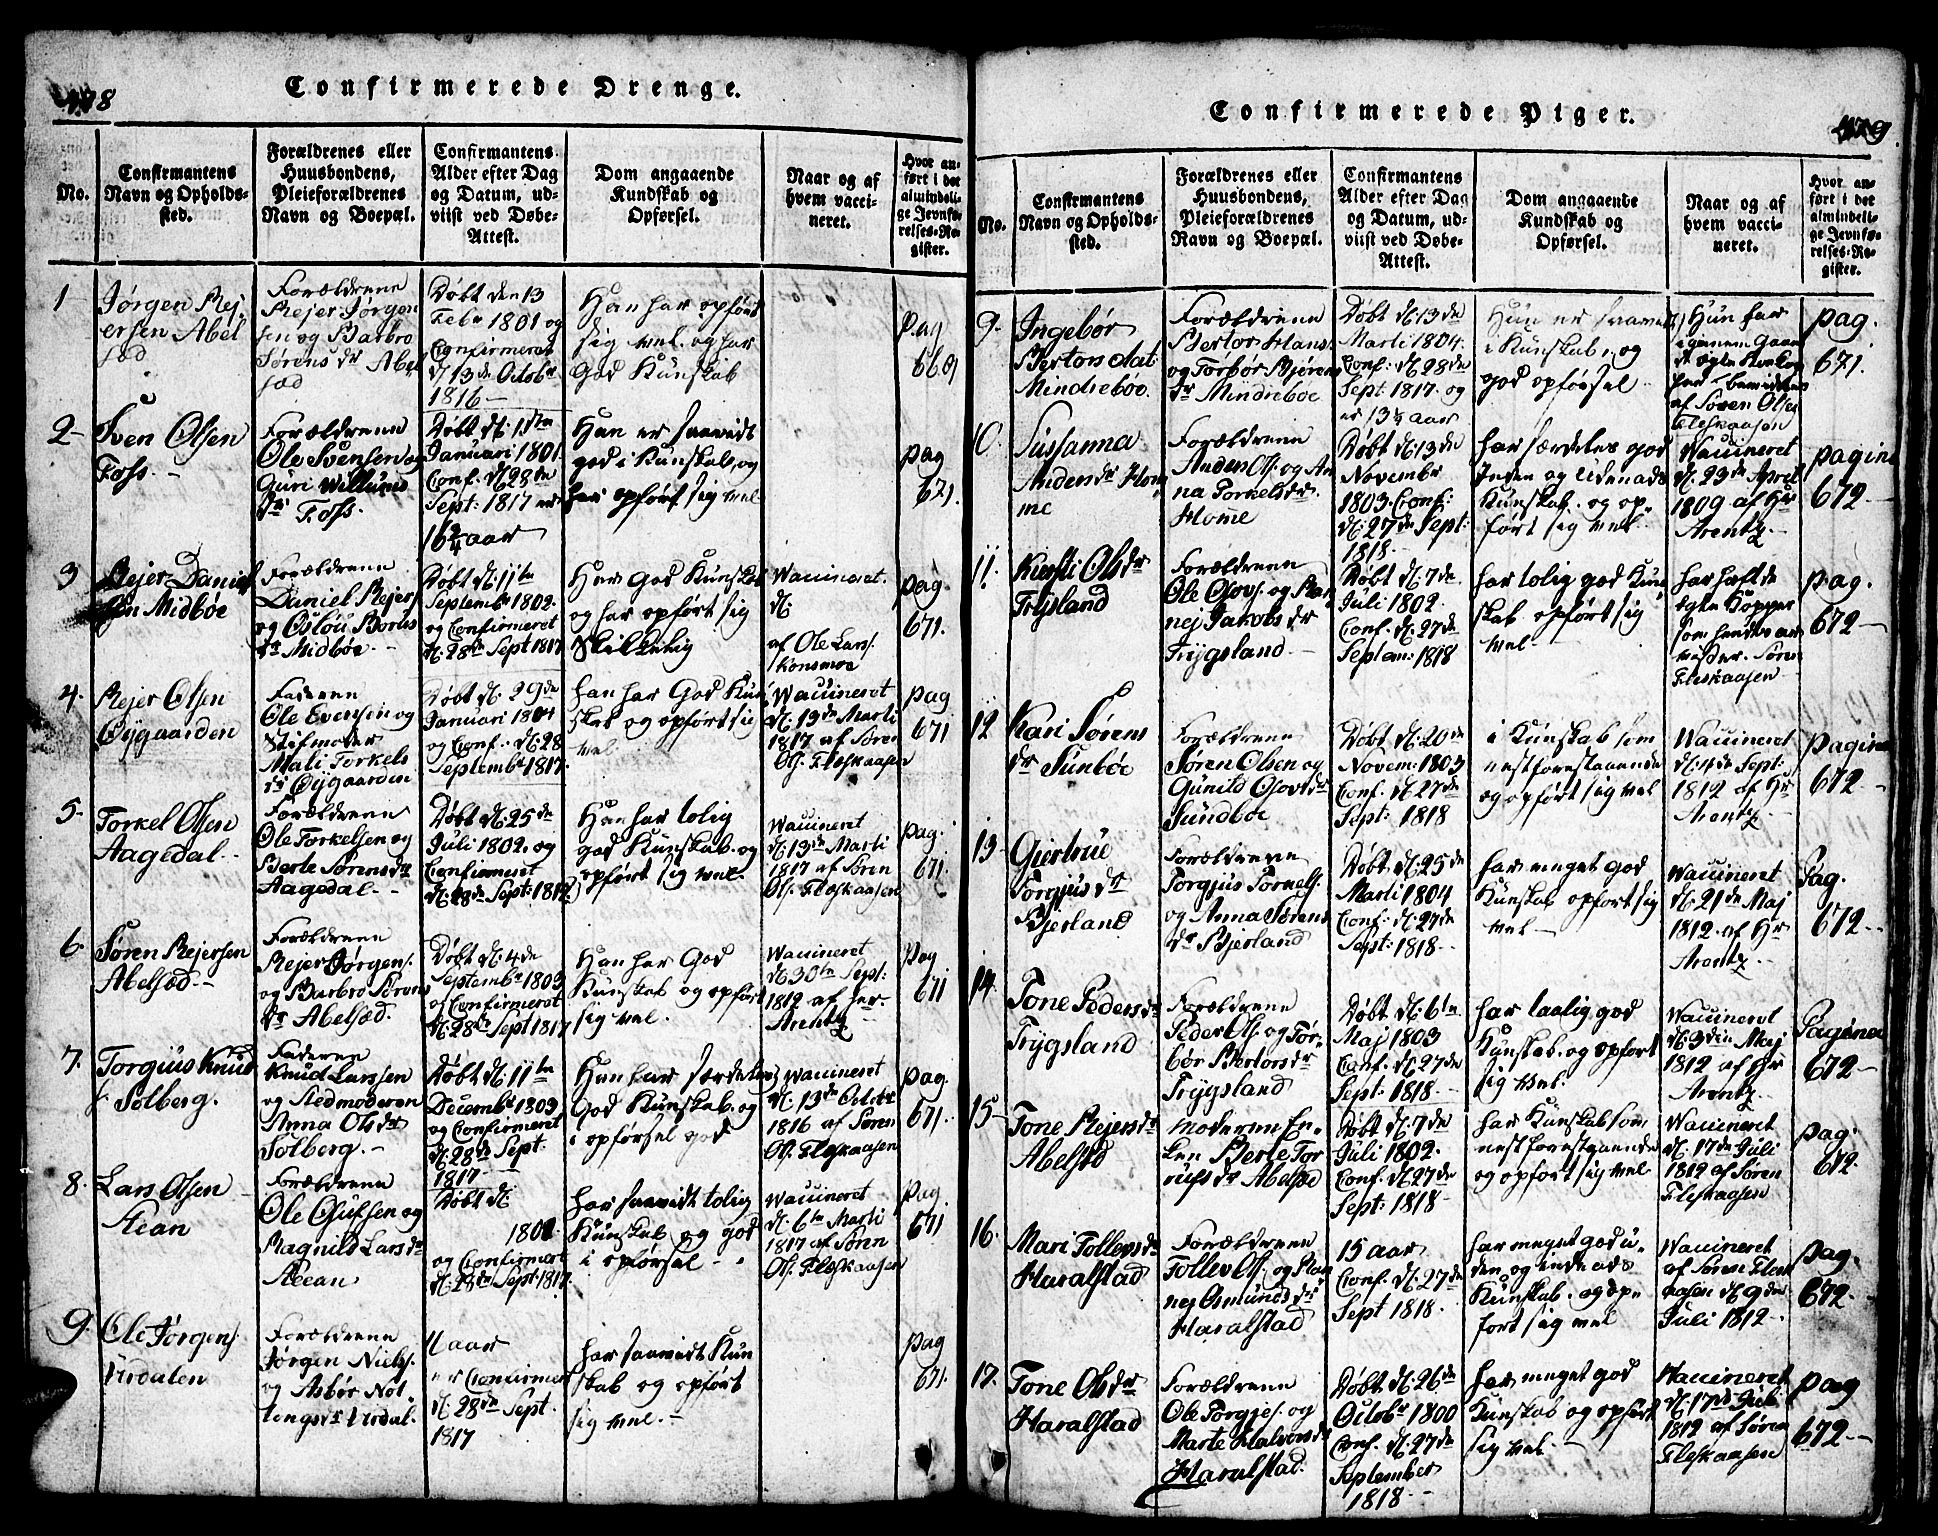 478
Confirmerede Drenge.
No.
Confirmantens
Navn og Opholds-
sted.
Forældrenes eller
Huusbondens,
Pleieforældrenes
Navn og Boepæl.
Confirmantens
Alder efter Dag
og Datum, ud-
viist ved Døbe-
Attest.
Dom angaaende
Kundskab og
Opførsel.
Naar og af
hvem vacci-
neret.
Hvor an-
ført i det
almindeli-
ge Jevnfø-
relses-Re-
gister.
1
Jørgen Rej-
ersen Abel
sæd
Forældrene
Rejer Jørgen
sen og Barbro
Sørens dr Abel
sæd
Døbt den 13
Febr 1801 og
Confirmeret
d. 13de Octobr
1816 -
Han har opført
sig vel og har
God Kunskab
Pag
669
2-
Sven Olsen
Foss. -
Forældrene
Ole Svensen og
Guri Willums
dr Foss.
Døbt d. 11te
Januari 1801.
Conf. d. 28de
Sept: 1817 er
16 3/4 aar
Han er saavidt
god i Kunskab, og
har opført sig vel
pag
671.
3
Rejer Daniel
sen Midbøe
Forældrene
Daniel Rejers
og Oslou Borus
dr Midbøe. -
Døbt d. 11te
Septembr 1802.
og Confirmeret
d. 28de Sept 1817
Har God Kunskab
og har opført sig
Skikkelig
Waccineret.
d.
af Ole Lars.
Konsmoe
pag.
671.
4.
Rejer Olsen
Øygaarden
Faderen
Ole Evensen og
Stifmoder
Mali Torkels
dr Øygaarden
Døbt d. 29de
Januari 1804
og Conf. d. 28
Septembr 1817.
han har God Kun-
skab og opført sig
vel
Waccineret
d. 13de Marti
1817 af Søren
Ols. Fleskaasen
pag
671
5.
Torkel Olsen
Aagedal. -
Forældrene
Ole Torkelsen og
Berte Sørens dr
Aagedal. -
Døbt d. 25de
Juli 1802. og
Confirmeret
d. 28de Sept: 1817.
Han har tolig
god Kunskab. og
opført sig vel.
Waccineret
d. 13de Marti
1817 af Søren
Ols. Fleskaasen
pag.
671.
6.
Søren Rejersen
Abelsæd. -
Forældrene
Rejer Jørgens.
og Barbro Sørens
dr Abelsæd.
Døbt d. 4de
Septembr 1803
og Confirmeret
d. 28de Sept 1817
Han har God
Kunskab og opført
sig vel.
Waccineret
d. 30te Sept:
1812 af Her-
Arentz
Pag
671
7.
Torgius Knud
s Solberg.
Faderen
Knud Larssen
og Stedmoderen
Anna Ols dr
Solberg. -
Døbt d. 11te
Decembr 1803
og Confirmeret
d. 28de Sept.
1817
Han har særdeles
God Kunskab. og
i opførsel god
Waccineret
d. 13de Octobr
1816 af Søren
Ols. Fleskaasen
pag.
671.
8.
Lars Olsen
Stean
Forældrene
Ole Gulfsen og
Ragnild Lars dr
Steean
Døbt d.
1802
og Confirmeret
d. 28de Sept. 1817.
har saavidt tolig
Kunskab og god
i opførsel -
Waccineret
d. 6te Marti
1817 af Søren
Ols. Fleskaasen
pag.
671
9.
Ole Jørgens.
Urdalen
Forældrene
Jørgen Niels.
og Asbør Not-
lengs dr Urdal.
aar
er Confirmert
d. 28de Sept.
1817
har saavidt Kun
skab og opført
sig vel. -
pag
671.
479
Confirmerede Piger.
No.
Confirmantens
Navn og Opholds-
sted.
Forældrenes eller
Huusbondens,
Pleieforældrenes
Navn og Boepæl.
Confirmantens
Alder efter Dag
og Datum, ud-
viist ved Døbe-
Attest.
Dom angaaende
Kundskab og
Opførsel.
Naar og af
hvem vacci-
neret.
Hvor an-
ført i det
almindeli-
ge Jevnfø-
relses-Re-
gister.
9.
Ingebør
Bertors dat:
Mindreboe.
Forældrene
Bertor Hans.
og Torbør Bjørens
dr Mindrebøe
Døbt d. 13de
Marti 1804.
Conf. d. 28de
Sept. 1817. og
er 13 1/2 aar
Hun er svan
i Kunskab. og
god opførsel.
Hun har
igiennem Gaaet
d. Ægte Kop
har bevidnes
af Søren Ols.
Fleskaasen
pag.
671.
10.
Sussanna
Anders dr Hom
me
Forældrene
Anders Ols. og An
na Torkels dr.
Home
Døbt d. 13de
Novembr
1803. Conf:
d. 27de Sept:
1818.
har særdeles god
Inden og Udenads
Kunskab. og op-
ført sig vel.
Waccineret
d. 23de April
1809 af Hr
Arentz. -
pagina
672-
11.
Kiersti Ols dr
Frijsland
Forældrene
Ole Olovs. og Ran
nej Jakobs dr
Trygsland. -
Døbt d. 7de
Juli 1802.
Conf. d. 27de
Septem: 1818
har tolig god Kun
skab opført sig
vel. -
har haft de
Egte Kopper
som hendes an
vidner. Søren
Fleskaasen
pag.
672-
12
Kari Sørens
dr Sunbøe
Forældrene
Søren Olsen og
Gunild Olovs dr
Sundboe
Døbt d. 20de
Novem: 1803
Conf. d. 27de
Sept: 1818
i Kunskab som
nestforestaaende
og opført sig vel
Waccineret
d. 4de Sept:
1812 af Hr
Arentz
pagina
672-
13-
Giertrue
Torgjus dr
Bjerland
Forældrene
Torgjus Tornels.
og Anna Sørens
dr Bjerland
Døbt. d. 25de
Marti 1804
Conf: d. 27de
Sept: 1818. -
har meget god
Kunskab opført sig
vel -
Waccineret
d. 21de Maj
1812. af Hr
Arentz
Pag.
672-
14.
Tone Peders dr
Trygsland
Forældrene
Peder Ols. og Tor-
bør Bertors dr
Trygsland
Døbt d. 6te
Maj 1803
Conf. d. 27de
Sept: 1818 -
har taalig god
Kunskab. og opført
sig vel.
Waccineret
d. 3die Maj
1812 af Hr
Arentz.
Pagina
672-
15-
Tone Rejers dr
Abelsæd
Moderen En-
ken Berte Tor
rufs dr Abelsæd
Døbt d. 7de
Juli 1802.
Conf. d. 27de
Sept: 1818 -
har Kunskab som
nestforestaaende
og opført sig vel
Waccineret
d. 17de Juli
1812 af Søren
Fleskaasen
pag.
672.
16.
Mari Tollevs dr
Haralstad
Forældrene
Tollev Ols. og Ran
nej Osmunds dr
Haralstad
15 aar
Conf. d. 27de
Sept 1818.
har meget god u-
den og indenads
Kunskab. og op-
fört sig vel
Waccineret
af Søren Flesk
aasen d. 9de
Juli 1812 -
pag.
672-
17.
Tone Ols dr
Haralstad
Forældrene
Ole Torgjes. og
Marte Halvors dr
Haralstad.
Døbt d. 26de
Octobr 1800
Conf. d. 27de
September
1818. -
har meget god
Kunskab og opført
sig vel. -
Waccineret
d. 17de Juli
1812 af Søren
Fleskaasen
pag
672-